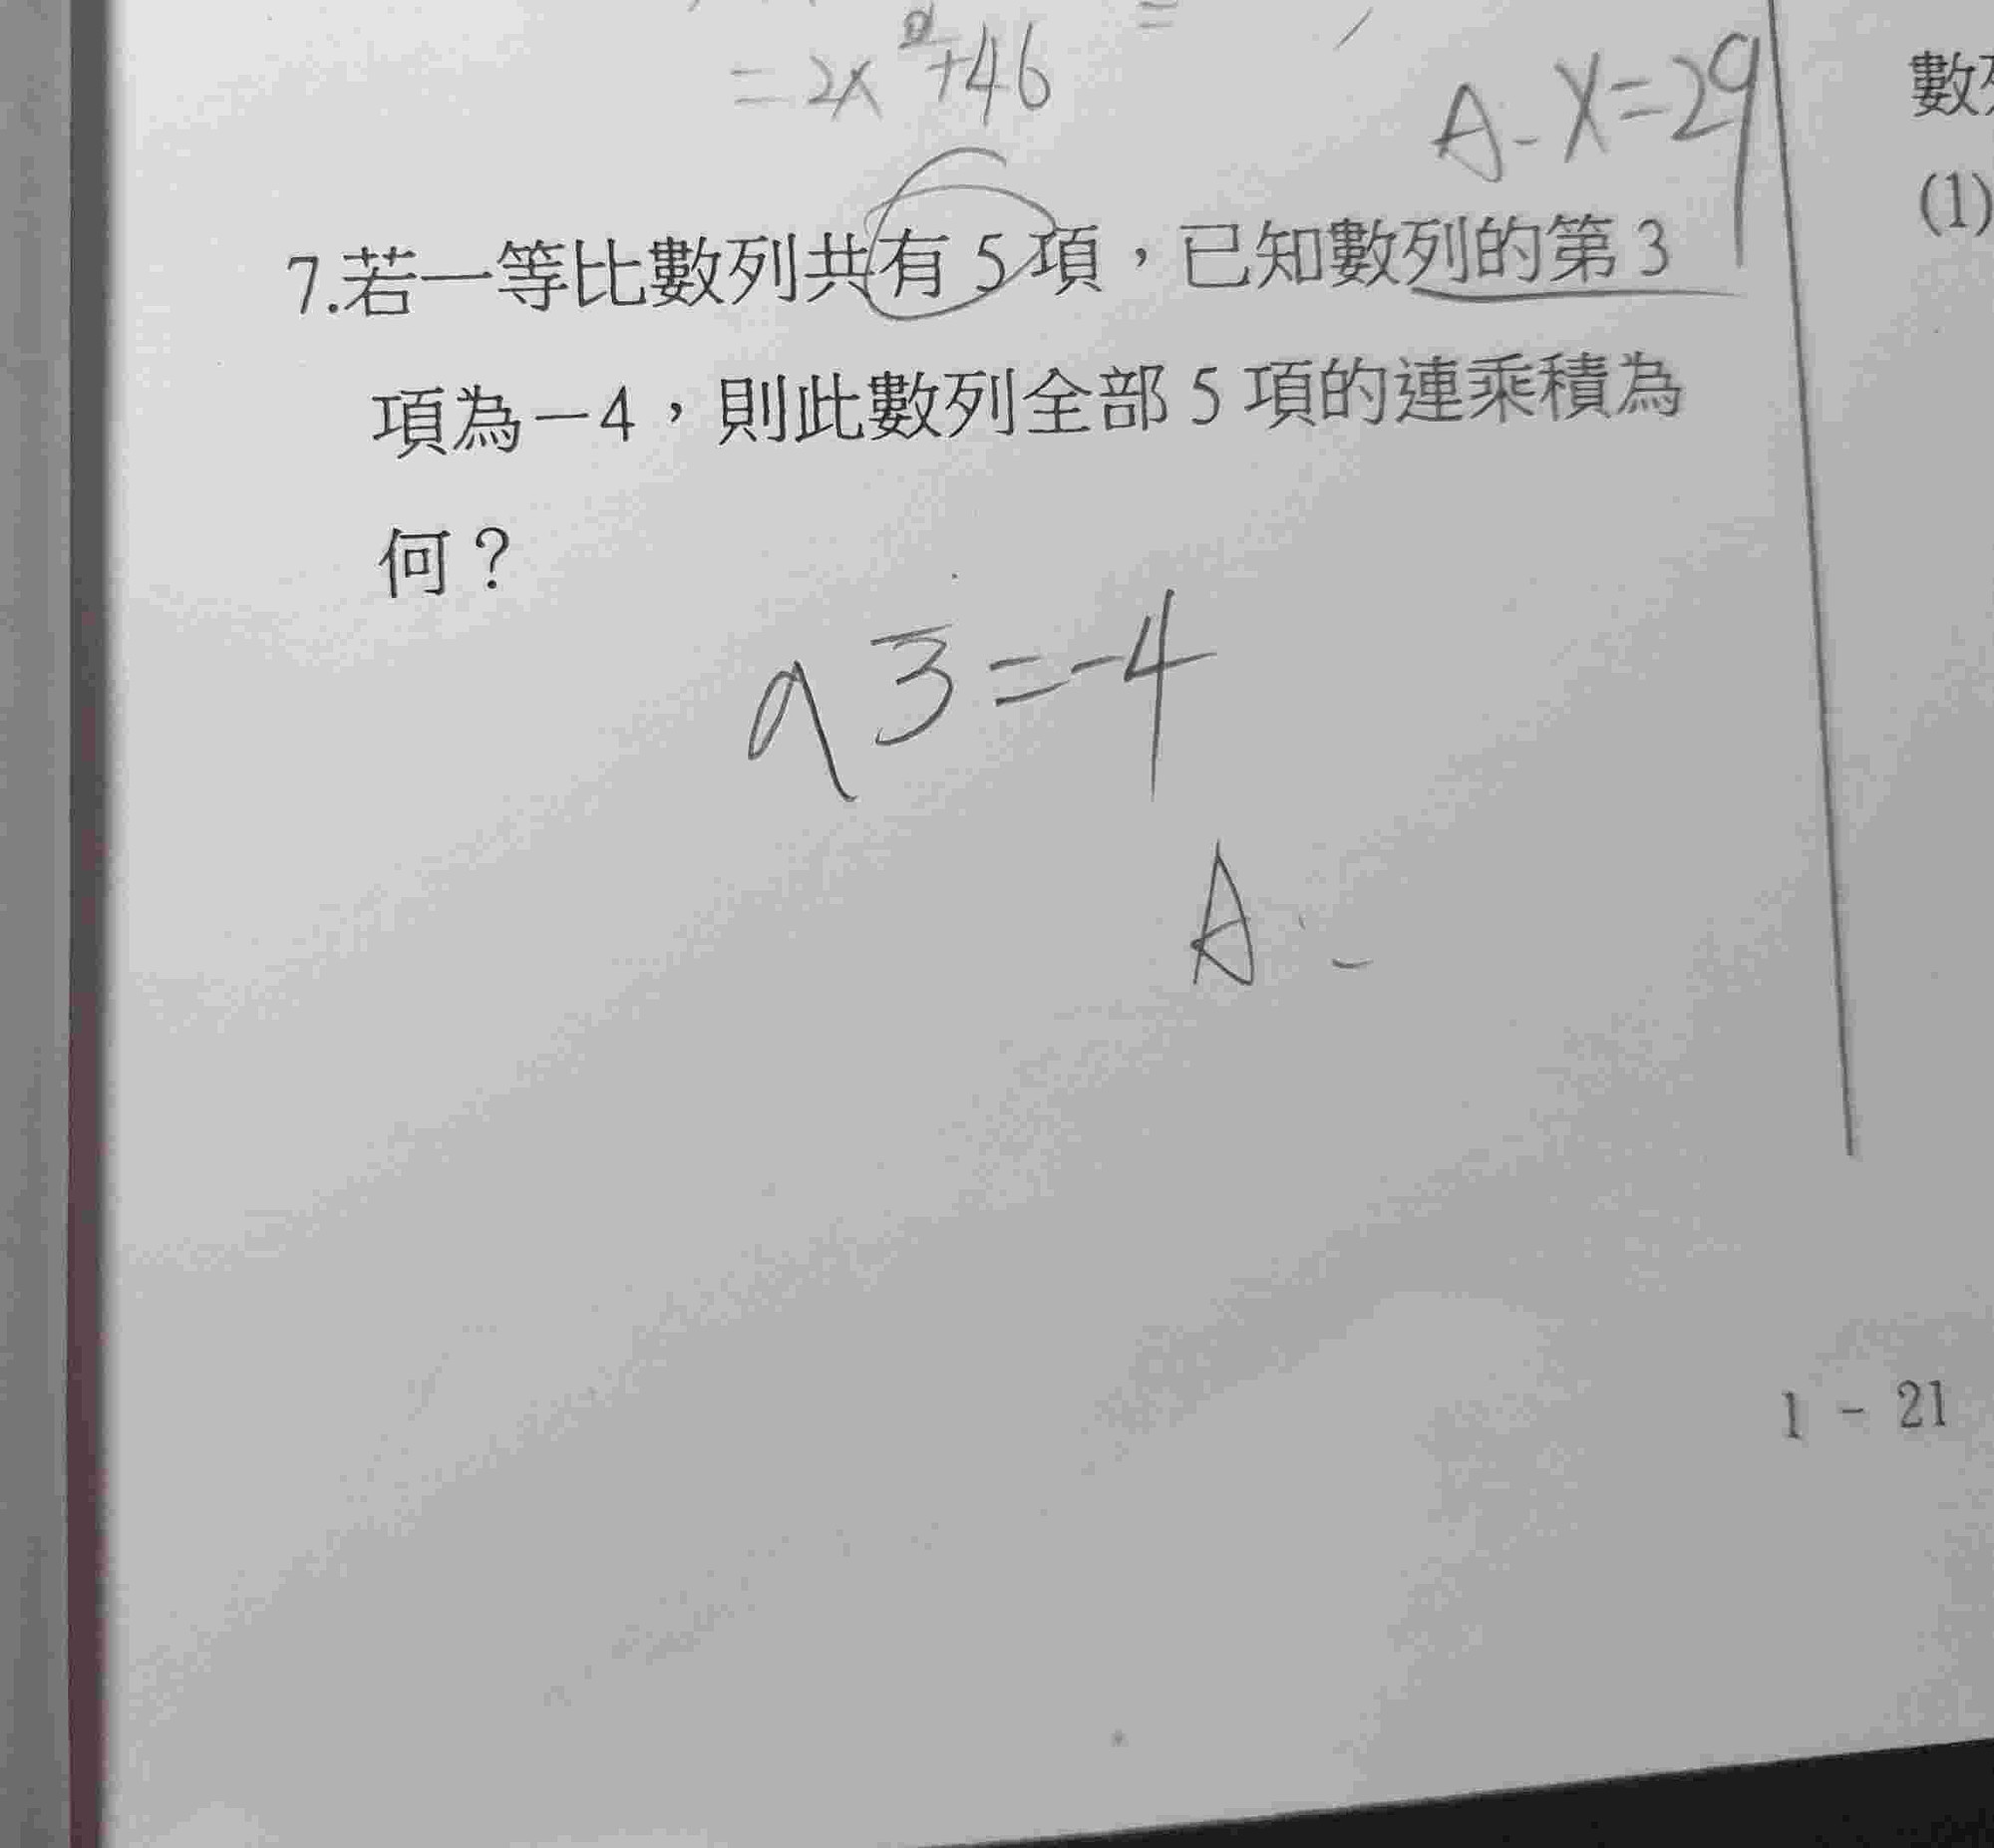 = 2x² + 46
A- x=29
數
(1)
7.若一等比數列共有 5 項，已知數列的第 3
項為－4，則此數列全部 5 項的連乘積為
何？
a3=-4
A:
1 - 21